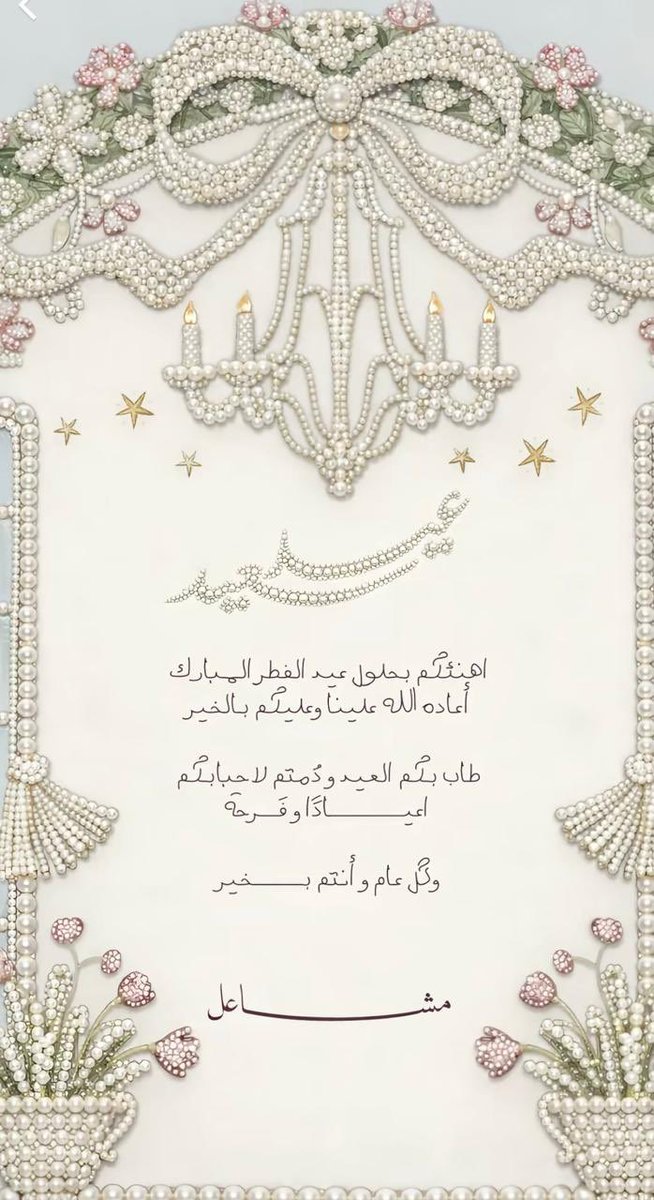 عيد سعيد
اهنئكم بحلول عيد الفطر المبارك
أعاده الله علينا وعليكم بالخير
طاب بكم العيد ودُمتم لاحبابكم
اعيـــــــادًا و فَـرحة
وكل عام و أنتم بـــــخير
مشـــــاعل